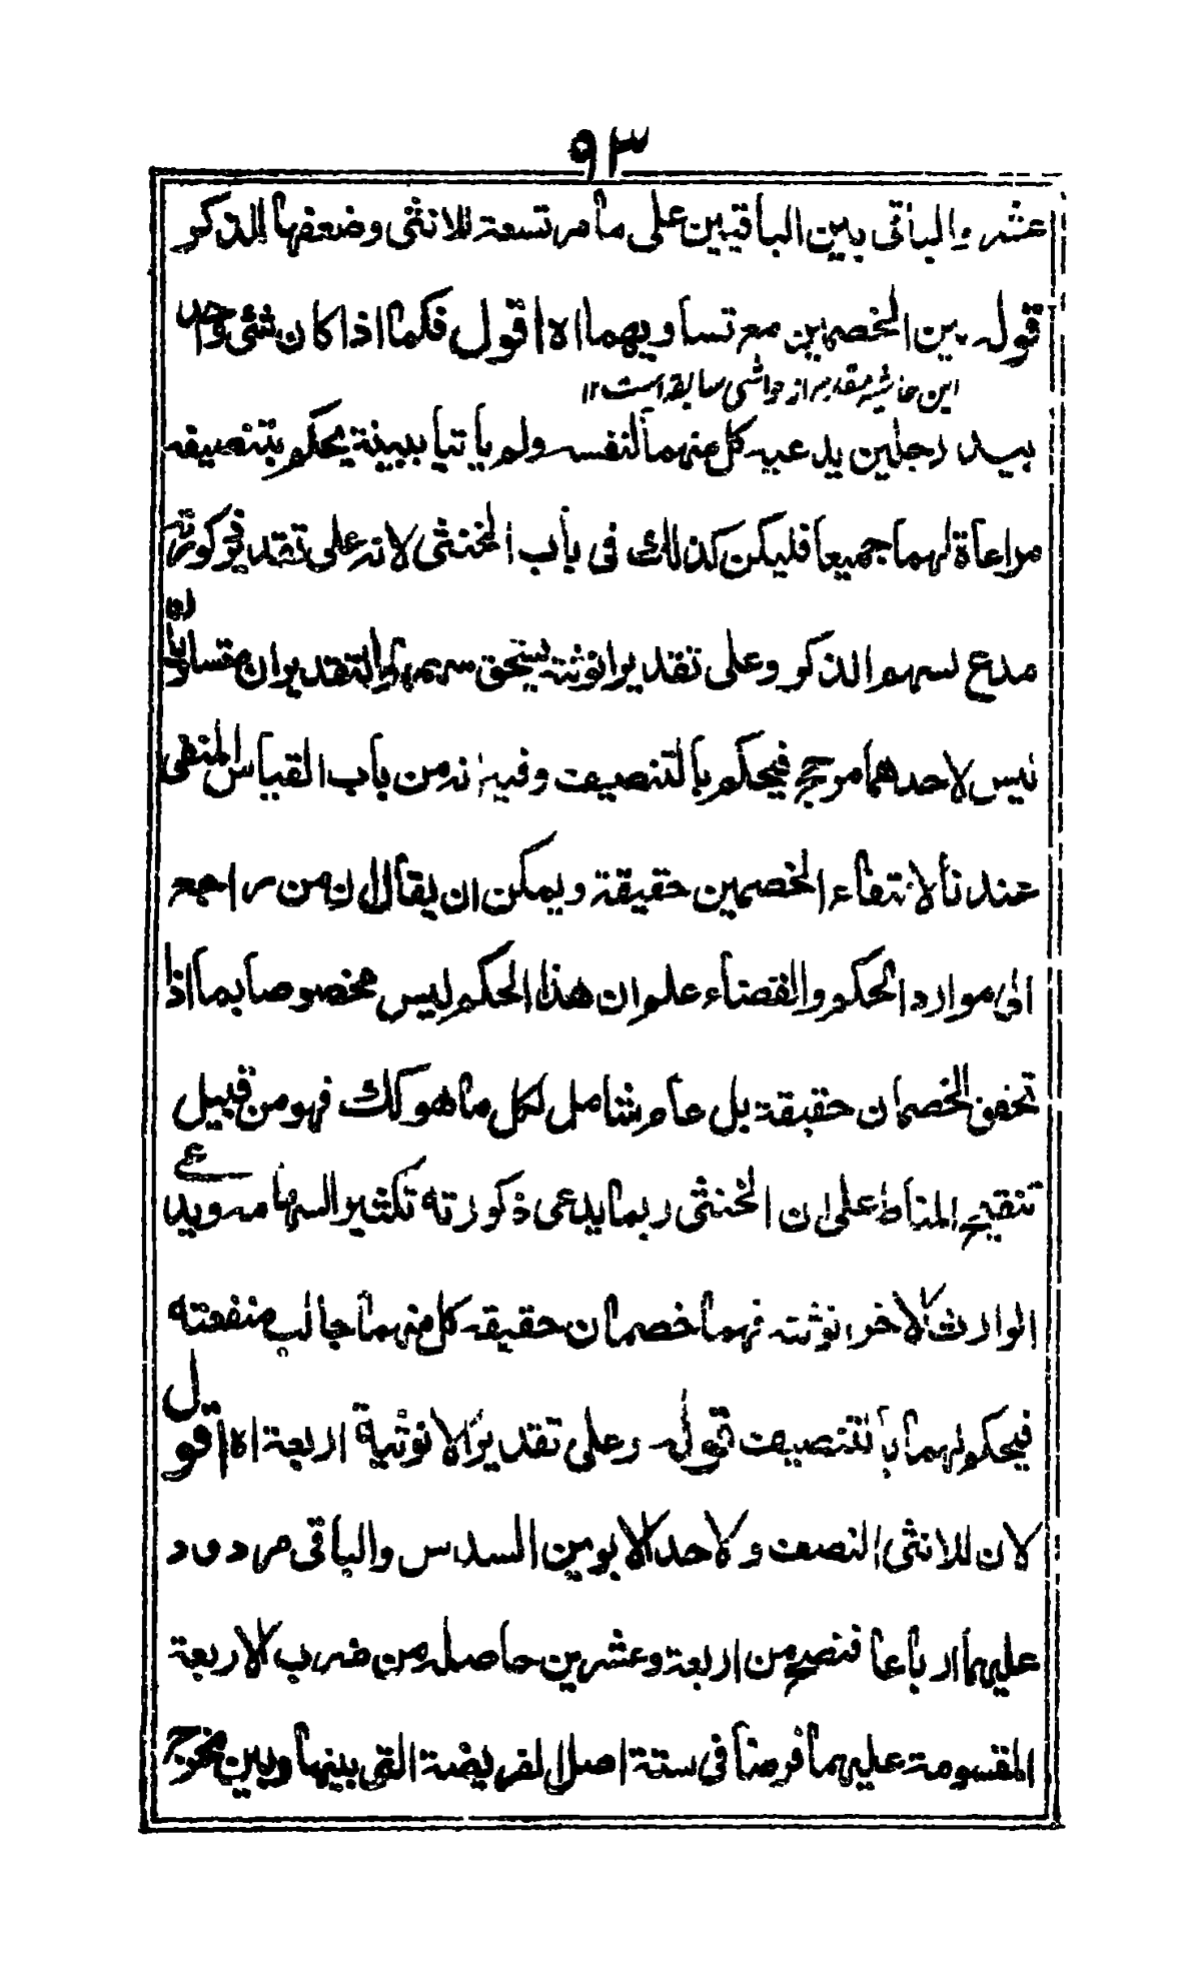 ٩٣
عشر والباقی بین الباقیین علی ما مر تسعة للانثی وضعفها للذکر
قوله بین الخصمین مع تساویهما اه اقول فکما اذا کان شئ واحد
این حاشیه مقدم از حواشی سابقه است ١٢
بید رجلین یدعیه کل منهما لنفسه ولم یاتیا ببینة یحکم بتنصیفه
مراعاة لهما جمیعا فلیکن کذلک فی باب الخنثی لانه علی تقدیر ذکورته
مدع لسهم الذکر وعلی تقدیر انوثته یستحق سهمها والتقدیران متساویان
لیس لاحدهما مرجح فیحکم بالتنصیف وفیه انه من باب القیاس المنفی
عندنا لانتفاء الخصمین حقیقة ویمکن ان یقال ان من راجع
الی موارد الحکم والقضاء علم ان هذا الحکم لیس مخصوصا بما اذا
تحقق الخصمان حقیقة بل عام شامل لکل ما هو کک فهو من قبیل
تنقیح المناط علی ان الخنثی ربما یدعی ذکورته تکثیر السهامه ویدعی
الوارث الاخر انوثته فهما خصمان حقیقه کل منهما جالب منفعته
فیحکم لهما بالتنصیف قوله وعلی تقدیر الانوثیة اربعة اه اقول
لان للانثی النصف ولاحد الابوین السدس والباقی مردود
علیهما ارباعا فتصح من اربعة وعشرین حاصله من ضرب الاربعة
المقسومة علیهما فرضا فی ستة اصل الفریضة التی بینها وبین مخرج